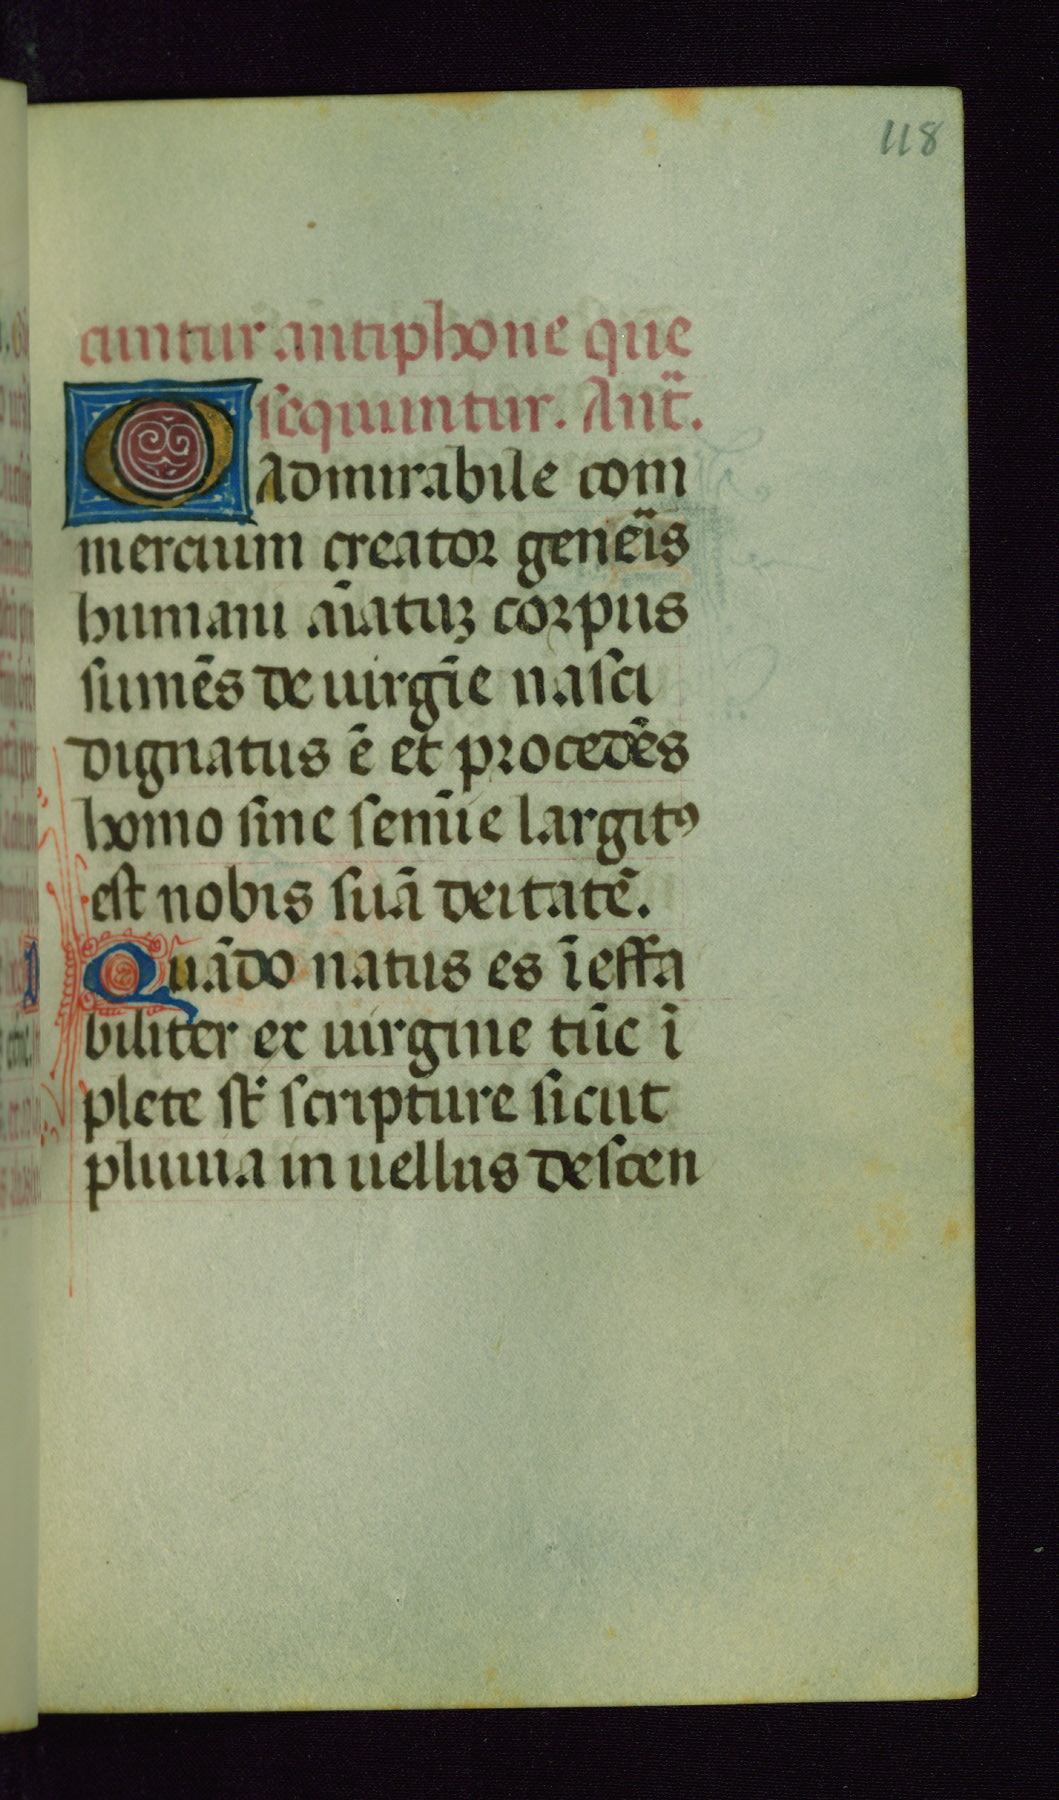 118
cuntur antiphone que
sequuntur. Ant̃.
O Admirabile com
mercium creator gene͂is
humani ai͂atuꝫ corpus
sume͂s de uirgi͂e nasci
dignatus e͂ et procede͂s
homo sine semi͂e largitꝯ
est nobis sua͂ deitate͂.
Qua͂do natus es i͂effa
biliter ex uirgine tu͂c i͂
plete st͂ scripture sicut
pluuia in uellus descen